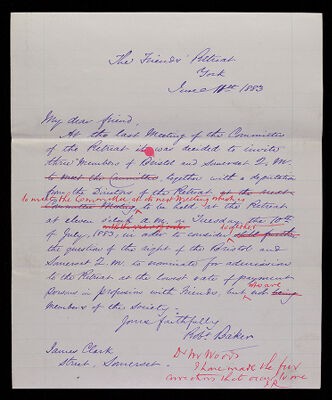 The Friends' Retreat
York
June 11th 1883
My dear friend,
At the last Meeting of the Committee
of the Retreat it was decided to invite
three Members of Bristol and Somerset Q. M.
to meet the Committee, together with a deputation
from the Directors of the Retreat at the next
to meet the Committee at its next Meeting which is
Committee Meeting to be held at the Retreat
at eleven o'clock a.m. on Tuesday the 10th
of July, 1883, in order to consider together
the question of the right of the Bristol and
Somerset Q. M. to nominate for admission
to the Retreat at the lowest rate of payment
persons in profession with Friends, but who are not being
members of the Society.
Yours faithfully
Robt. Baker
James Clark
Street, Somerset.
Dr Mr Woods
I have made the few
corrections that occur to me